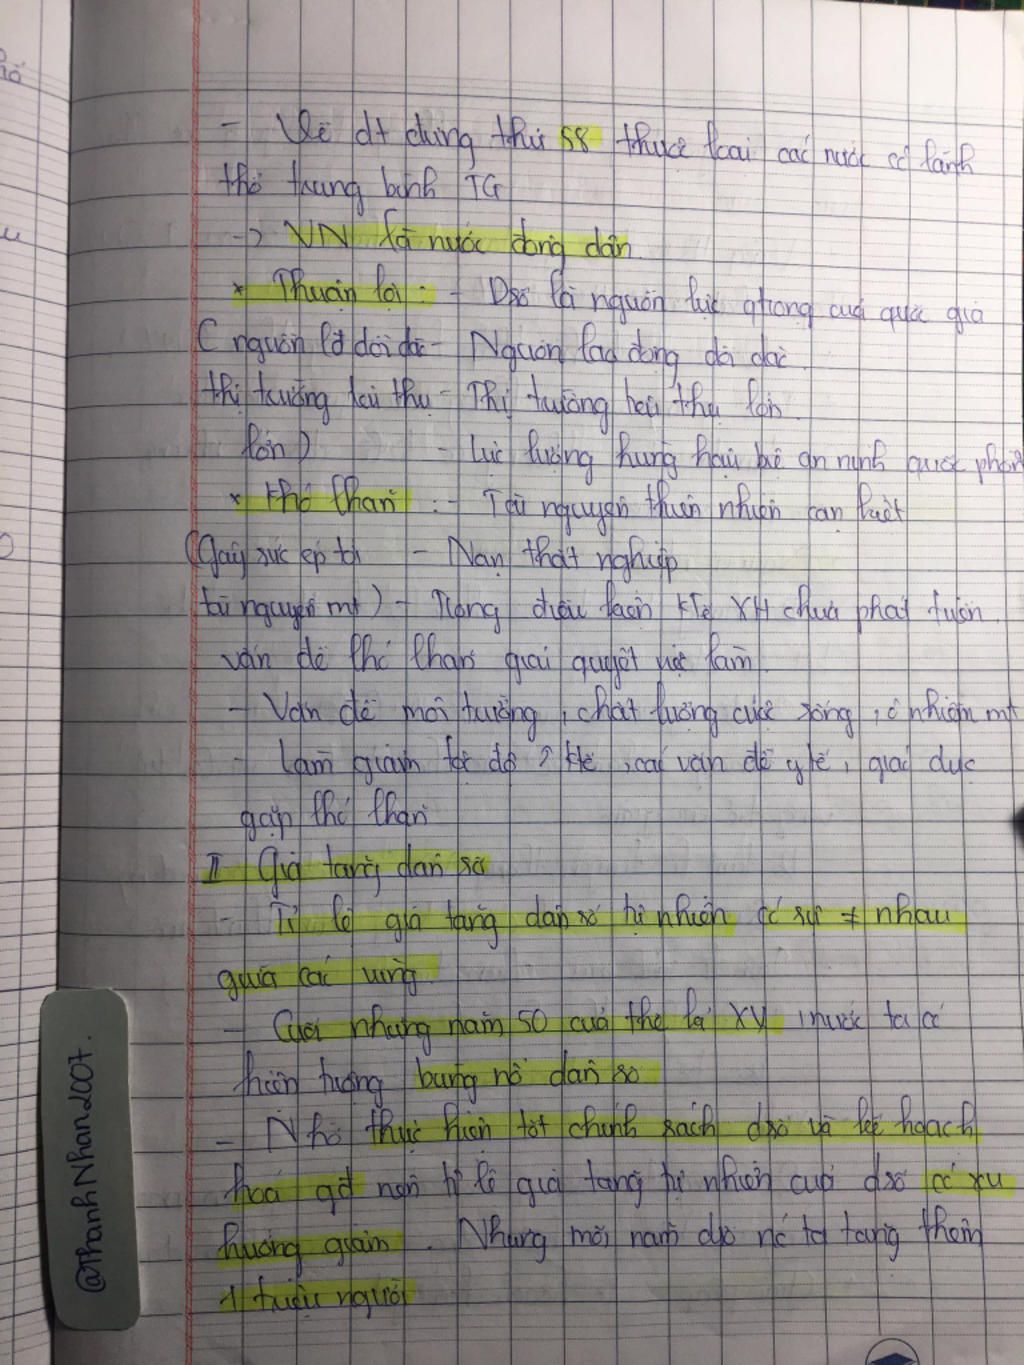 - Về dt đứng thứ 58 thuộc loại các nước có lãnh
thổ trung bình TG
-> VN là nước đông dân
* Thuận lợi : - Dsố là nguồn lực qtrọng của quốc gia
( nguồn lđ dồi dào - Nguồn lao động dồi dào
thị trường tiêu thụ - Thị trường tiêu thụ lớn
lớn ) - Lực lượng hùng hậu bvệ an ninh quốc phòng
* Khó khăn : - Tài nguyên thiên nhiên cạn kiệt
(Gây sức ép tới - Nạn thất nghiệp
tài nguyên mt) - Trong điều kiện KTế XH chưa phát triển
vấn đề khó khăn giải quyết việc làm
- Vấn đề môi trường , chất lượng cuộc sống , ô nhiễm mt
- Làm giảm tốc độ ↑ ktế , các vấn đề y tế , giáo dục
gặp khó khăn
II Gia tăng dân số
- Tỉ lệ gia tăng dân số tự nhiên có sự ≠ nhau
giữa các vùng
- Cuối những năm 50 của thế kỉ XX , nước ta có
hiện tượng bùng nổ dân số
- Nhờ thực hiện tốt chính sách dsố và kế hoạch
hoá gđ nên tỉ lệ gia tăng tự nhiên của dsố có xu
hướng giảm . Nhưng mỗi năm ds nc ta tăng thêm
1 triệu người
@ThanhNhan2007.